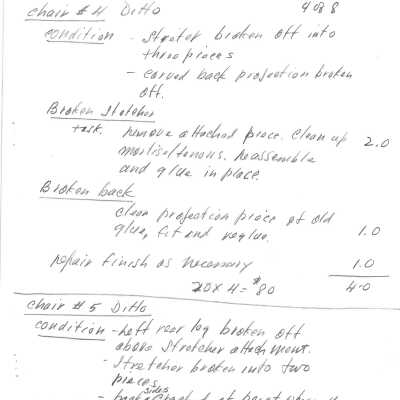 chair # 4 Ditto 4 of 8
condition - Streter broken off into
three pieces
- carved back projection broken
off.
Broken Stetcher
task. remove attached piece. Clean up 2.0
mortise/tenons. Reassemble
and glue in place.
Broken back
clean projection piece of old
glue, fit and reglue. 1.0
repair finish as necessary 1.0
20 x 4 = $80 4.0
chair # 5 Ditto
condition - Left rear leg broken off
above stretcher attachment.
- Stretcher broken into two
pieces
sides